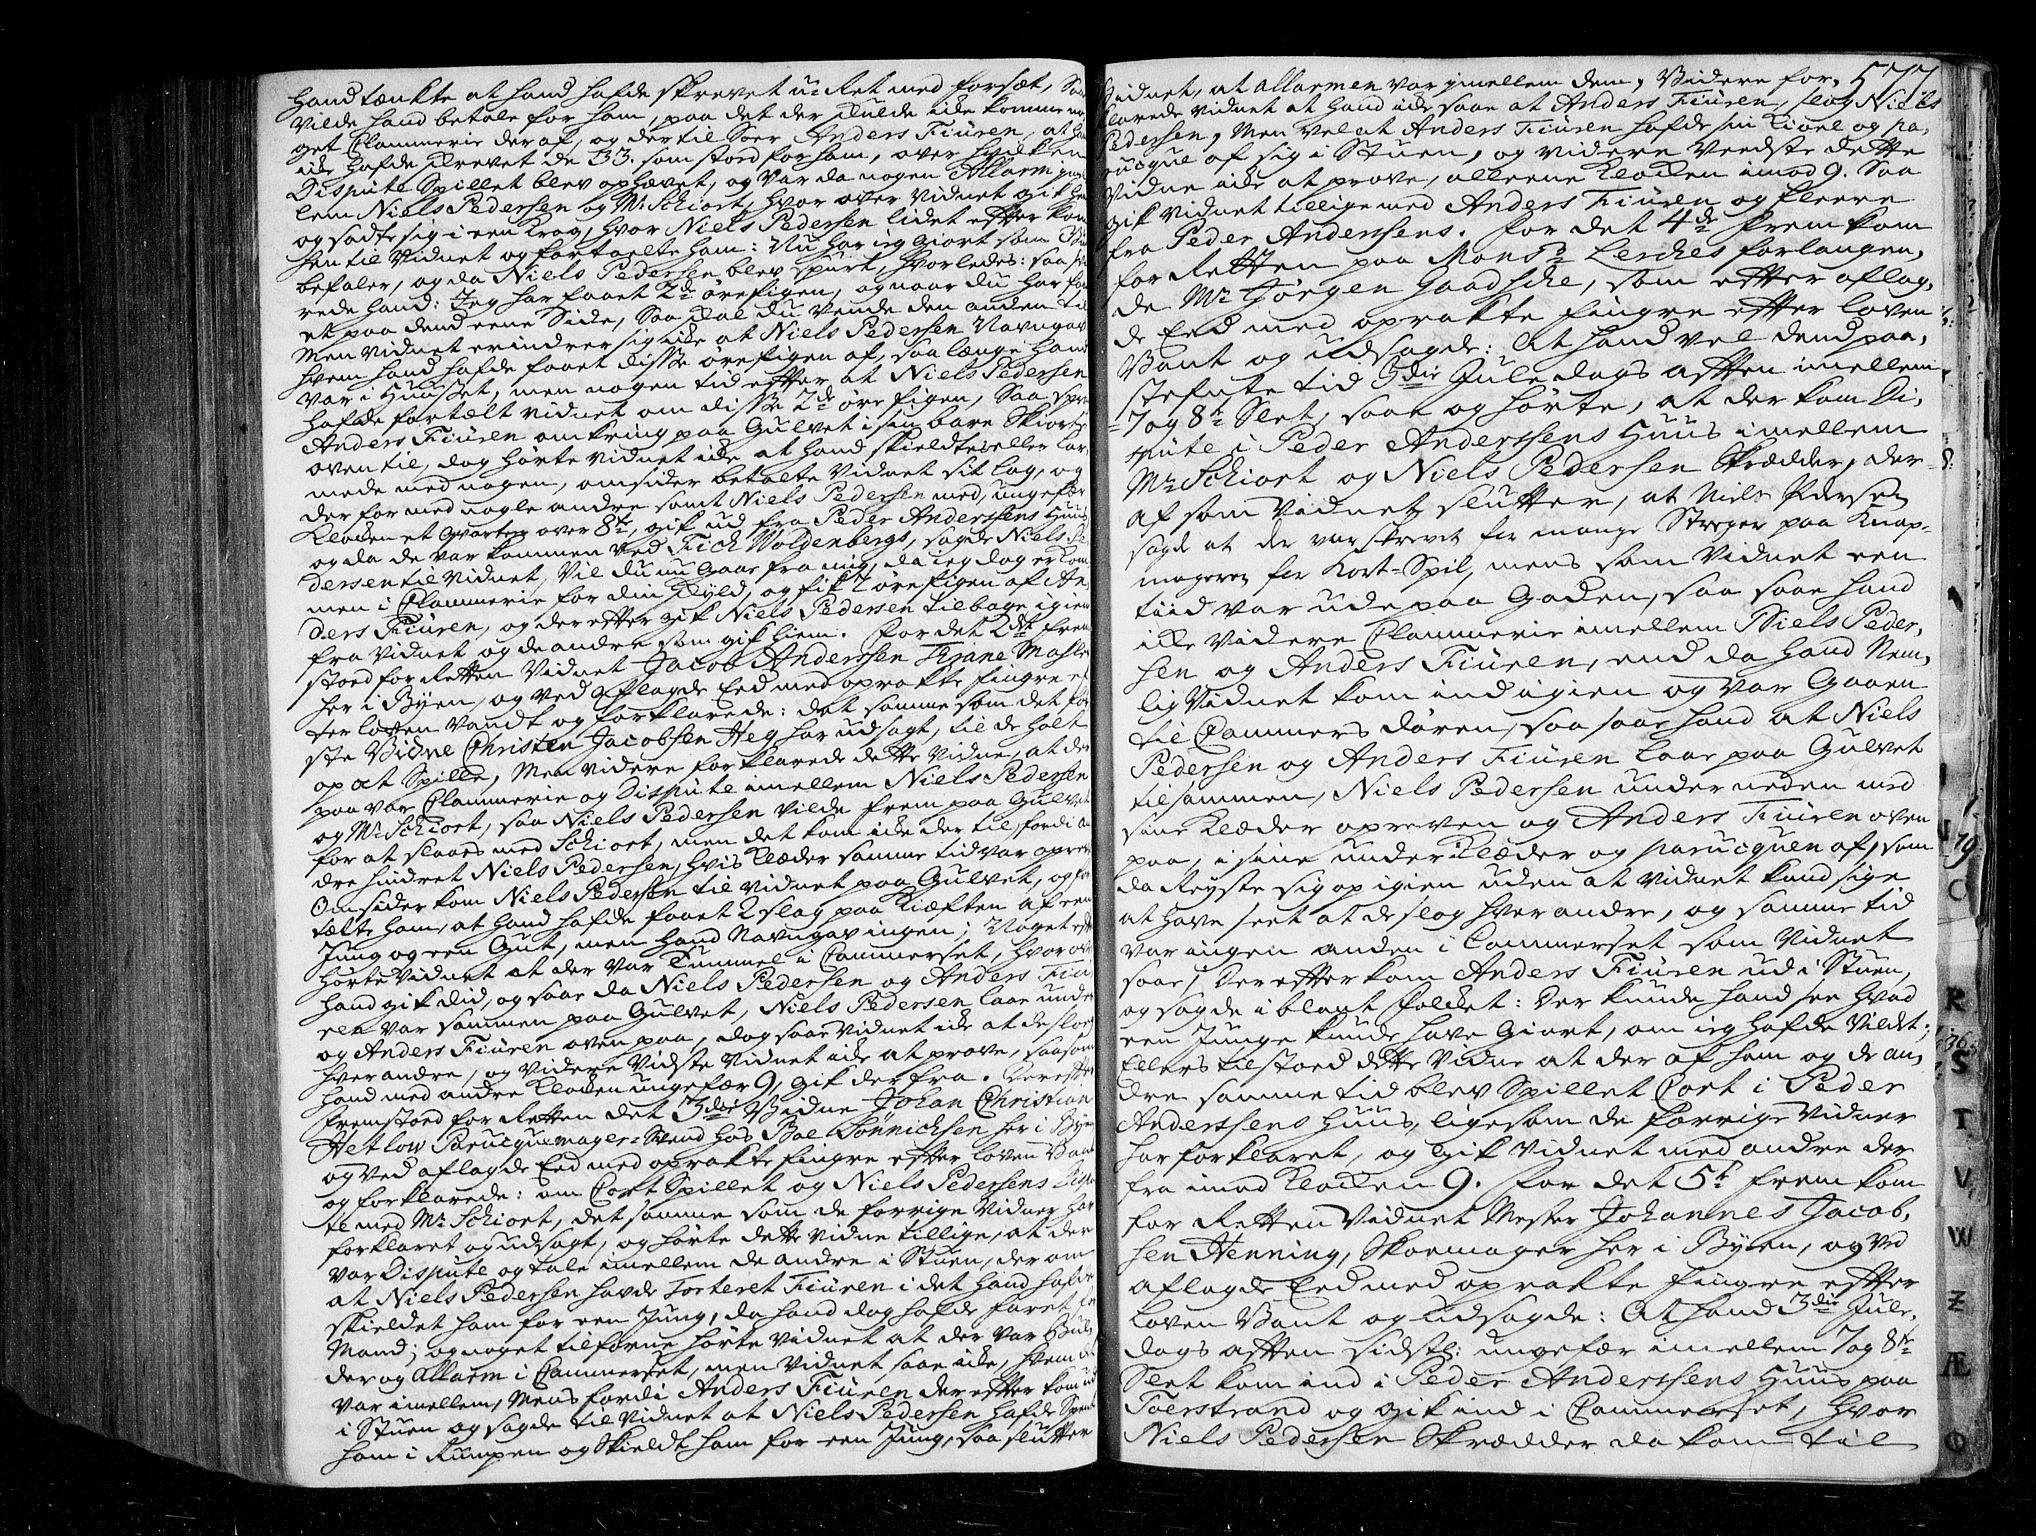 hand tænkte at hand hafde skrevet u-Ret med forsæt, Saa
vilde hand betale for ham, paa det der skulde icke komme no,
get Clammerie deraf, og der til Soer Anders Fiuren, at hand
icke hafde skrevet de 33. som stoed for ham, over hvilken
Dispute Spillet blev ophævet, og var da nogen Allarm imel
lem Niels Pedersen og Mr Schiort, hvor over vidnet gik hen
og sadte sig i een Krog, hvor Niels Pedersen lidet efter kom
hen til Vidnet og fortaelte ham: Nu har ieg giort som
befaler, og da Niels Pedersen blev spurt, hvorledes: saa
rede hand: Jeg har faaet 2de ørefigen, og naar du har faa
et paa dend eene Side, Saa skal du vende den anden til
Men vidnet erindrer sig icke at Niels Pedersen Navngav
hvem hand hafde faaet disse ørefigen af, saa længe hand
var i Huuset, men nogen tid efter at Niels Pedersen
hafde fortælt vidnet om disse 2de ørefigen, Saa sprang
Anders Fiuren omkring paa Gulvet i sin bare Skiorte
oven til, dog hørte vidnet icke at hand skieldte eller lar,
mede med nogen, omsider betalte vidnet sit lag, og
der for med nogle andre samt Niels Pedersen med, ungefær
Klocken et Qvarteer over 8te, gik ud fra Peder Anderssens Huus
og da de var kommen ved Fich Woldenbergs, sagde Niels Pe
dersen til vidnet, Vil du nu gaae fra mig, da ieg dog er kom
men i Clammerie for din skyld, og fik 2 ørefigen af An
ders Fiuren, og der efter gik Niels Pedersen tilbage igien
fra vidnet og de andre som gik hiem. For det 2det frem
stoed for Retten vidnet Jacob Anderssen Krane Mahler
her i Byen, og ved aflagde Eed med oprakte fingre ef
ter loven vandt og forklarede: det samme som det før
ste Vidne Christen Jacobsen Heg har udsagt, til de holt
op at Spille, Men videre forklarede dette vidne, at der
paa var Clammerie og Dispute imellem Niels Pedersen
og Mr Schiort, saa Niels Pedersen vilde frem paa Gulvet
for at slaaes med Schiort, men det kom icke der til, fordi an
dre hindret Niels Pedersen, hvis Klæder samme tid var opreven
Omsider kom Niels Pedersen til vidnet paa Gulvet, og for
tælte ham, at hand hafde faaet 2 slag paa kiæften af een
Jung og een Gut, men hand Navngav ingen; Noget efter
hørte vidnet at der var Tummel i Cammerset, hvor over
hand gik did, og saae da Niels Pedersen og Anders Fiu
ren var sammen paa Gulvet, Niels Pedersen laae under
og Anders Fiuren oven paa, dog saae vidnet icke at de slog
hver andre, og videre vidste vidnet icke at prove, saasom
hand med andre Klocken ungefær 9, gik der fra. Derefter
fremstoed for Retten det 3die Vidne Johan Christian
Hetlow Parucquemager-Svend hos Boe Sønnichsen her i Byen
og ved aflagde Eed med oprakte fingre efter loven Vant
og forklarede: om Cort Spillet og Niels Pedersens Dispu
te med Mr Schiort, det samme som de forrige vidner har
forklaret og udsagt, og hørte dette vidne tillige, at der
var Dispute og tale imellem de andre i Stuen, der om
at Niels Pedersen havde Torteret Fiuren i det hand hafde
skieldet ham for een Jung, da hand dog hafde faret for
Mand; og noget tilforne hørte vidnet at der var Bul,
der og Allarm i Cammerset, men vidnet saae icke, hvem det
var imellem, Mens fordi Anders Fiuren der efter kom ud
i Stuen og sagde til vidnet at Niels Pedersen hafde
ham i Rumpen og Skieldt ham for een Jung, saa slutter
577
Vidnet, at Allarmen var imellem dem, Videre for,
klarede vidnet at hand icke saae at Anders Fiuren, slog Niels
Pedersen, Men vel at Anders Fiuren hafde sin kiole og pa,
rucque af sig i Stuen, og videre veedste dette
vidne icke at prove, alleene Klocken imod 9. Saa
gik vidnet tillige med Anders Fiuren og fleere
fra Peder Anderssens. For det 4de frem kom
for Retten paa Monsr Lerches forlangen,
de Mr Jørgen Gaadsche, som efter aflag,
de Eed med oprakte fingre efter loven
Vant og udsagde: At hand vel dend paa,
stefnte tid 3die Juledags aften imellem
7 og 8te Slet, saae og hørte, at der kom Di,
spute i Peder Anderssens Huus imellem
Mr Schiort og Niels Pedersen Skrædder, der
af som vidnet slutter, at Niels Pedersen
sagde at der var skrevet for mange Streger paa Knap-
mageren for Kort-Spil, mens som vidnet een
tiid var ude paa Gaden, saa saae hand
icke videre Clammerie imellem Niels Peder,
sen og Anders Fiuren, end da hand Nem,
lig Vidnet kom ind igien og var Gaaen
til Cammers døren, saa saae hand at Niels
Pedersen og Anders Fiuren laae paa Gulvet
tilsammen, Niels Pedersen under neden med
sine Klæder opreven og Anders Fiuren oven
paa, i sine under Klæder og parucquen af, som
da Reyste sig op igien uden at vidnet kand sige
at have seet at de slog hver andre, og samme tid
var ingen anden i Cammerset som vidnet
saae, Der efter kom Anders Fiuren ud i Stuen,
og sagde i blant folcket: Der kunde hand see hvad
een Junge kunde have giort, om ieg hafde vildt;
Ellers tilstoed dette vidne at der af ham og de an,
dre samme tid blev Spillet Cort i Peder
Anderssens Huus, ligesom de forrige vidner
har forklaret, og gik vidnet med andre der
fra imod Klocken 9. For det 5te frem kom
for Retten Vidnet Mester Johannes Jacob,
sen Henning, Skoemager her i Byen, og ved
aflagde Eed med oprakte fingre efter
loven Vant og udsagde: At hand 3die Jule,
dags aften sidstl: ungefær imellem 7 og 8te
Slet kom ind i Peder Anderssens Huus paa
Toerstrand og gik ind i Cammerset, hvor
Niels Pedersen Skrædder da kom til
79
C
R
36
S
T
V
W
Z
Æ
Ø